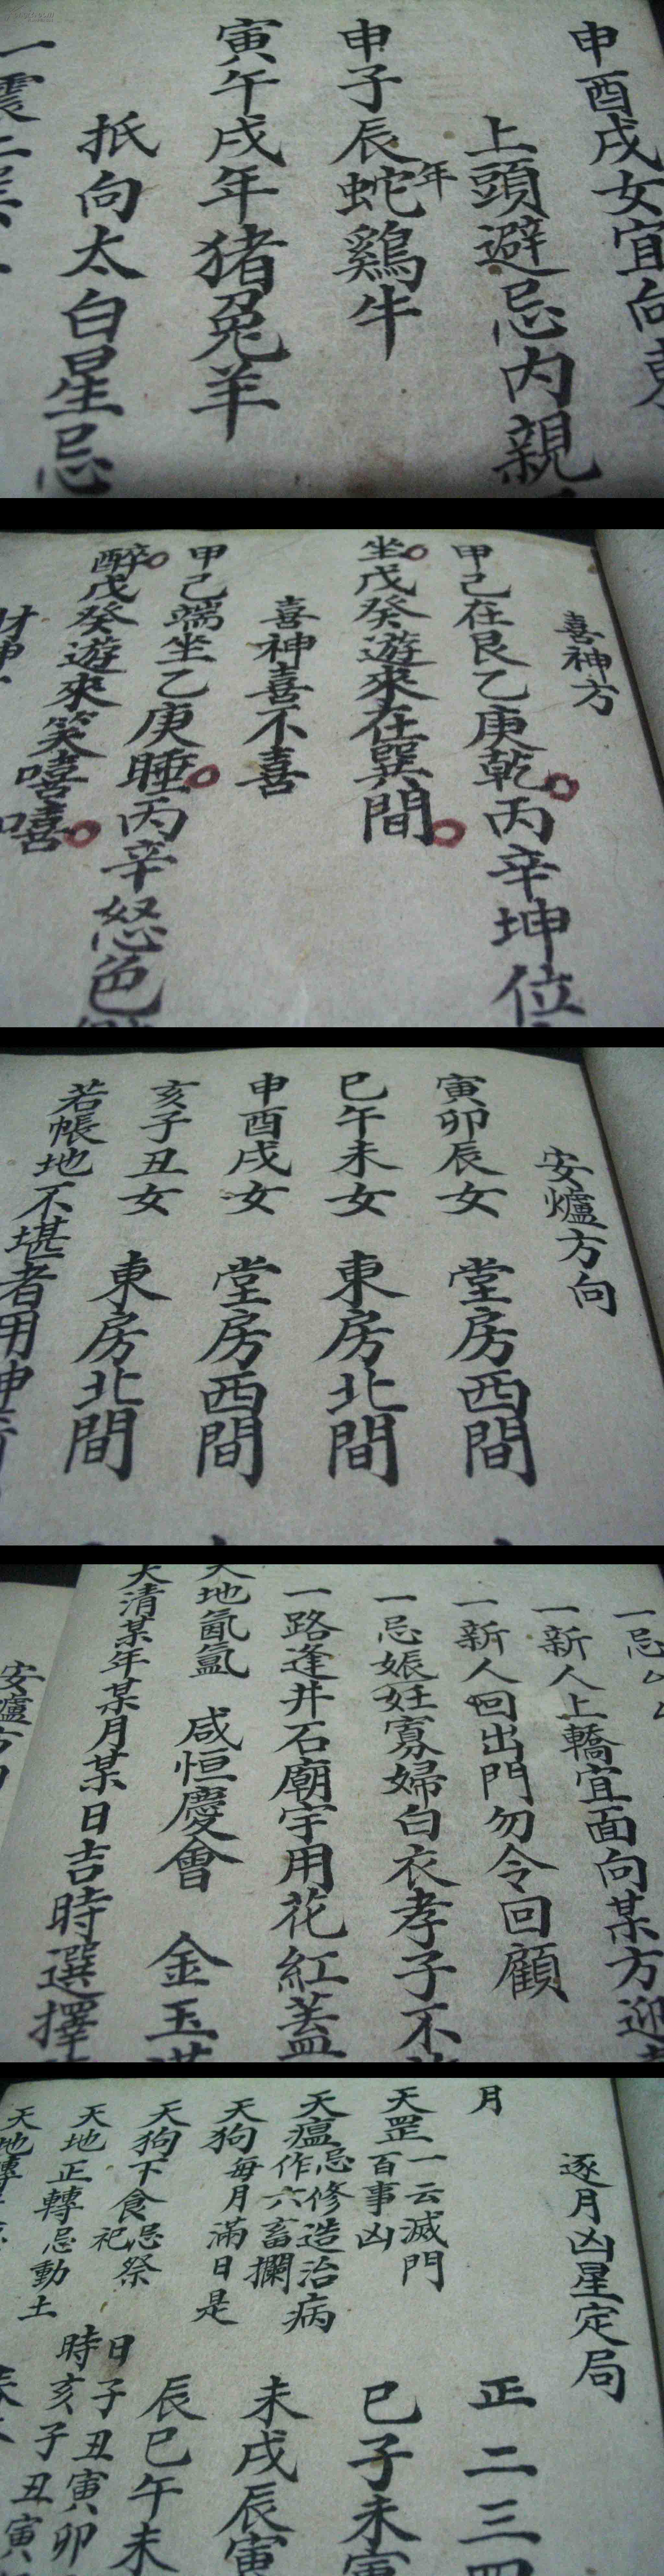 申酉戌女宜向東
上頭避忌内親
申子辰年蛇鷄牛
寅午戌年猪兔羊
抵向太白星忌
一震
喜神方
甲己在艮乙庚乾丙辛坤位
坐戊癸遊來在巽間
喜神喜不喜
甲己端坐乙庚睡丙辛怒色
醉戊癸遊來笑嘻嘻
財神
安爐方向
寅卯辰女 堂房西間
巳午未女 東房北間
申酉戌女 堂房西間
亥子丑女 東房北間
若帳地不堪者用
一忌
一新人上轎宜面向某方迎
一新人回出門勿令回顧
一忌娠妊寡婦白衣孝子不
一路逢井石廟宇用花紅蓋
天地氤氳 咸恒慶會 金玉
大清某年某月某日吉時選擇
安爐方向
逐月凶星定局
月 正二三四
天罡一云滅門百事凶 巳子未寅
天瘟忌修造治病作六畜欄 未戌辰寅
天狗每月滿日是 辰巳午未
天狗下食忌祭祀 日子丑寅卯
時亥子丑寅
天地正轉忌動土
天地轉